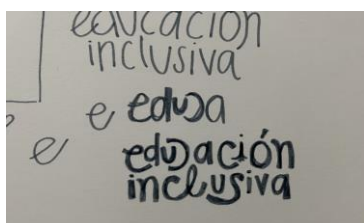 educación
inclusiva
e educa
e educación
inclusiva